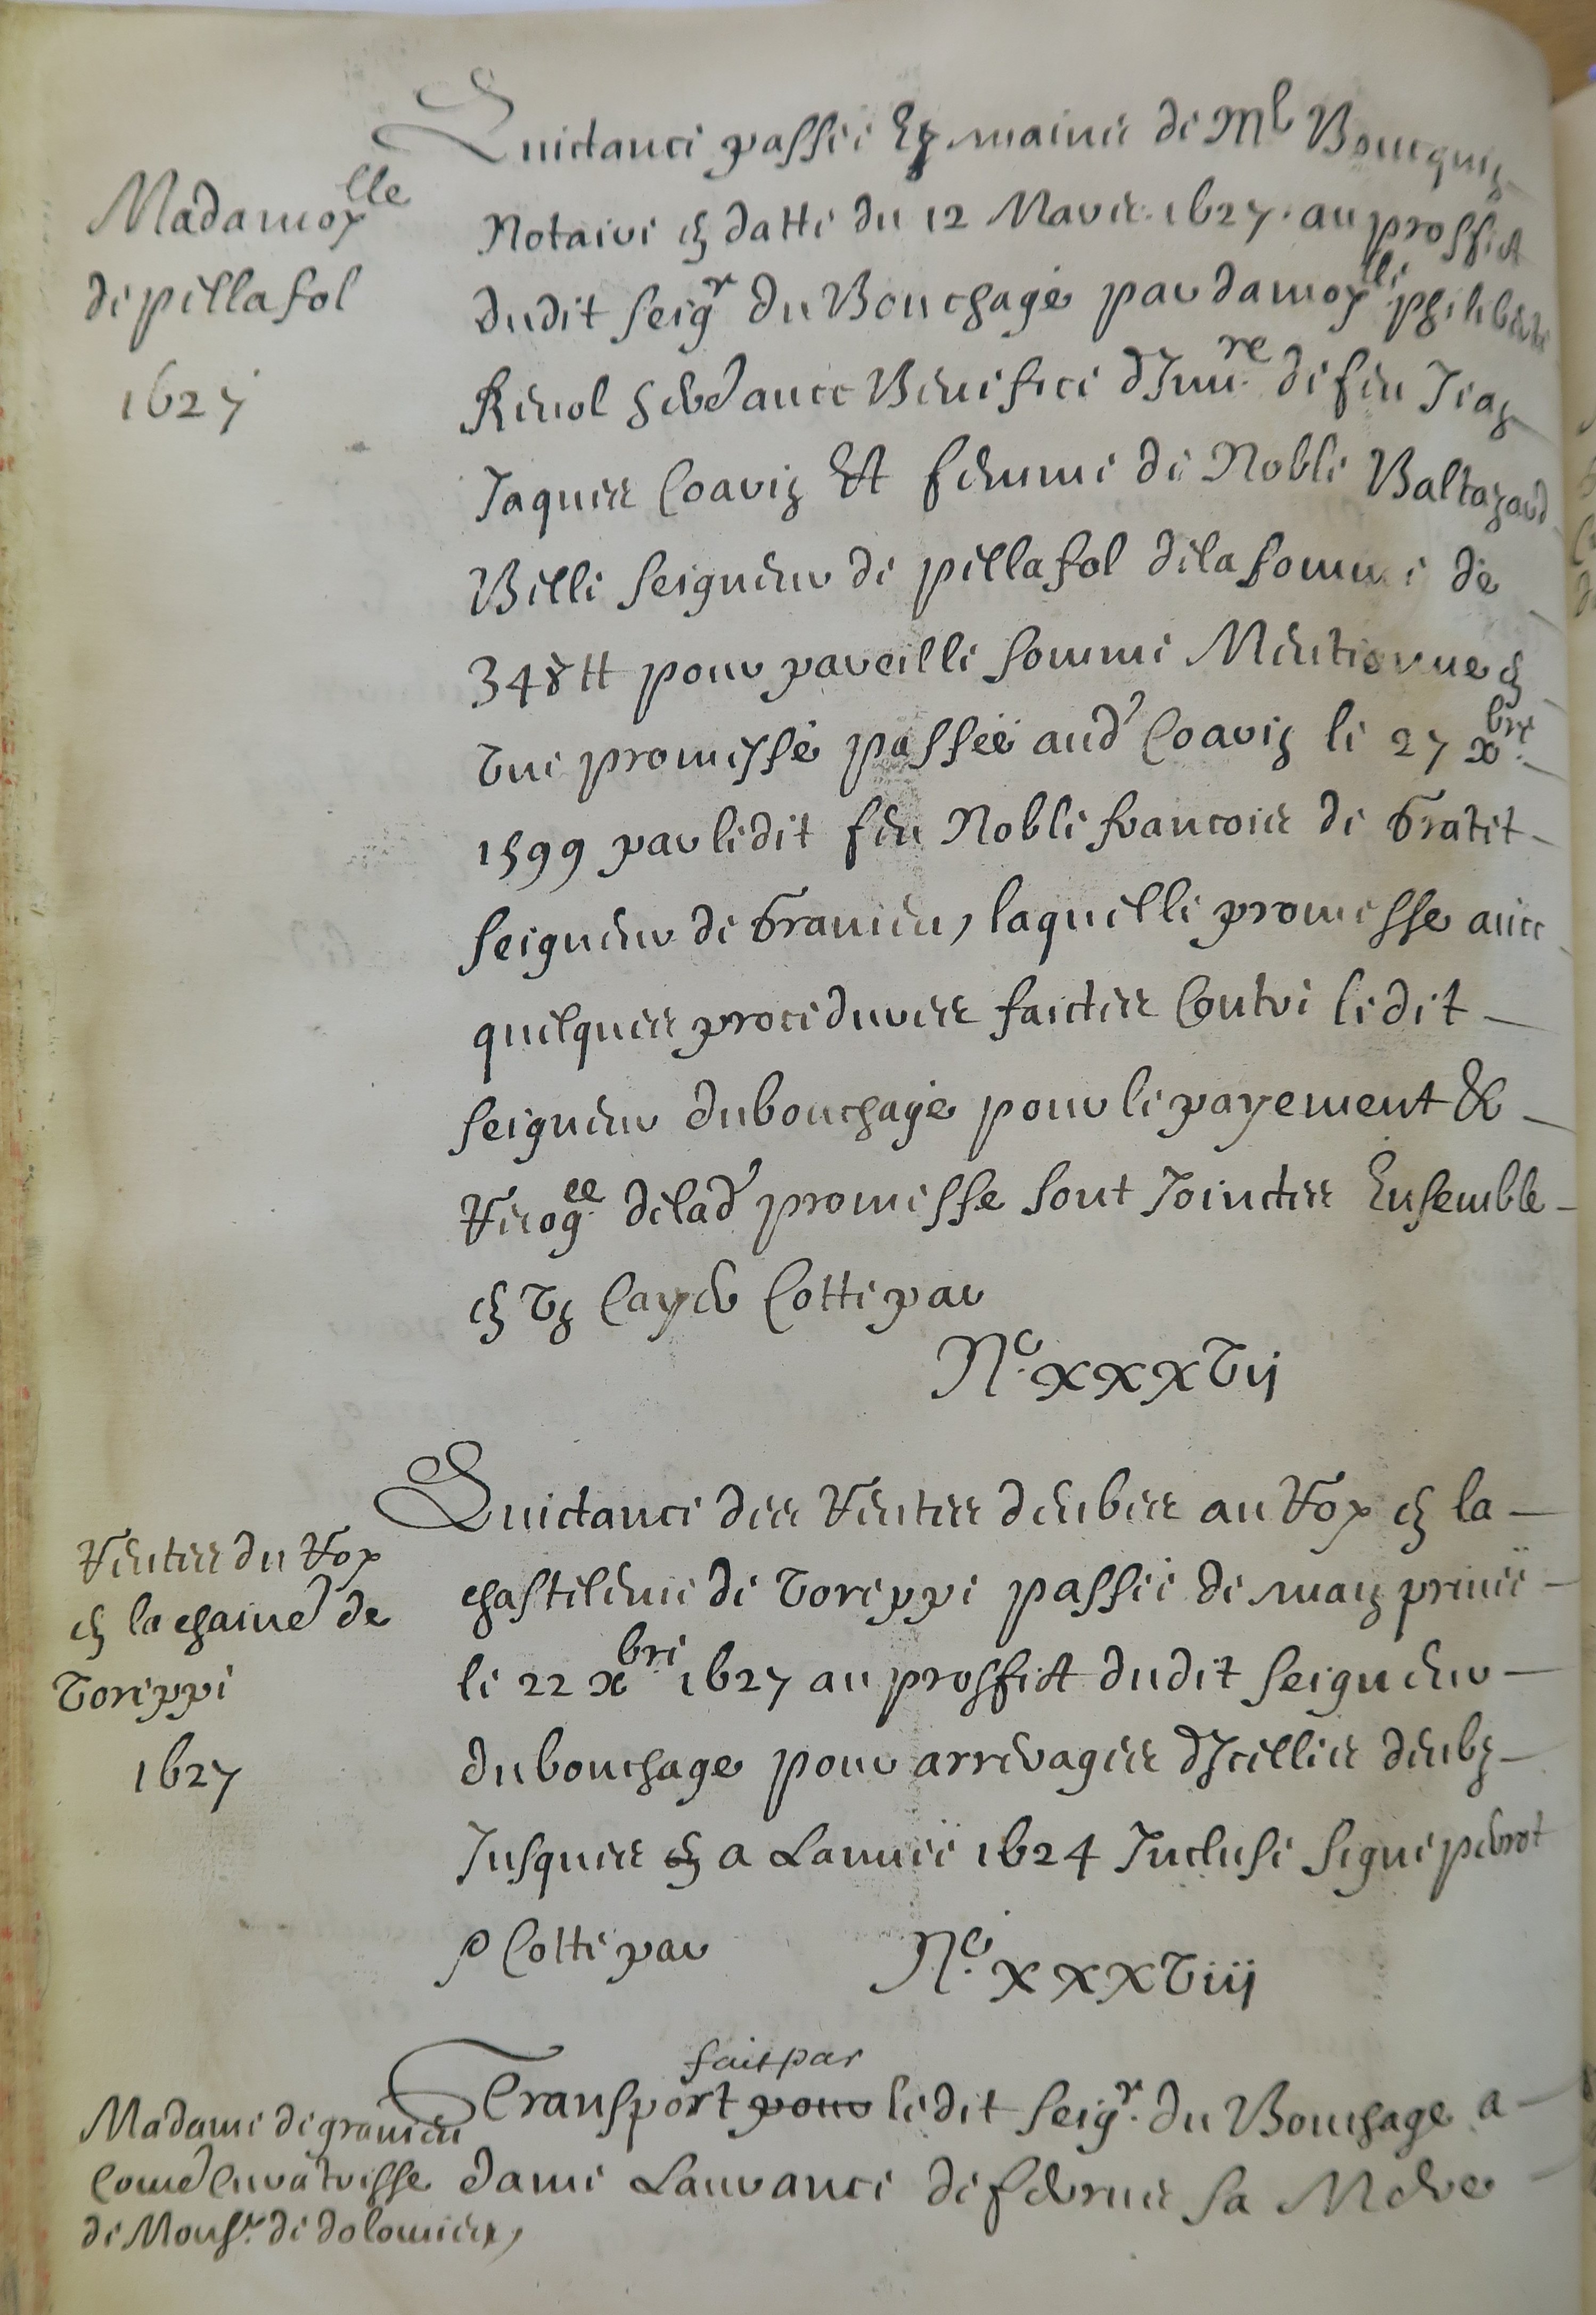 Madamoy^lle
de pellafol
1627
Quictance passée Es maines de M^e Boucquin
Notaire en datte du 12 Mars 1627 au proffict
dudit seig^r du Bouchage par damoy^lle philiberte
Revol herd avec Benefice d'Inu^re de feu Jean
Jaques Coavin Et femme de Noble Baltazard
Belli seigneur de pellafol de la somme de
348 tt pour pareille somme Mentionne en
Une promesse passée aud Coavin le 27 x^bre
1599 par ledit feu Noble francois de Gratet
seigneur de Granieu, laquelle promesse avec
quelques procedures faictes Contre ledit
seigneur dubouchage pour le payement &
Recog^ce de lad promesse sont Joinctes Ensemble
en Un Cayer Cotte par
N^o. xxxvij
Rentes du Rox
en la chaine de
Voreppe
1627
Quictance des Rentes deubes au Rox en la
chastelenie de Voreppe passée de main privée
le 22 x^bre 1627 au proffict dudit seigneur
dubouchage pour arrerages d'Icelles deubz
Jusques en a Lannée 1624 Incluse signé perrot
p Cotte par
N^o. xxxviij
Madame de granieu
Comd Curatrisse
de Mons^r. de dolomieu,
fait par
Transport pour ledit seig^r. du Bouchage a
dame Laurance de ferrus sa Mere